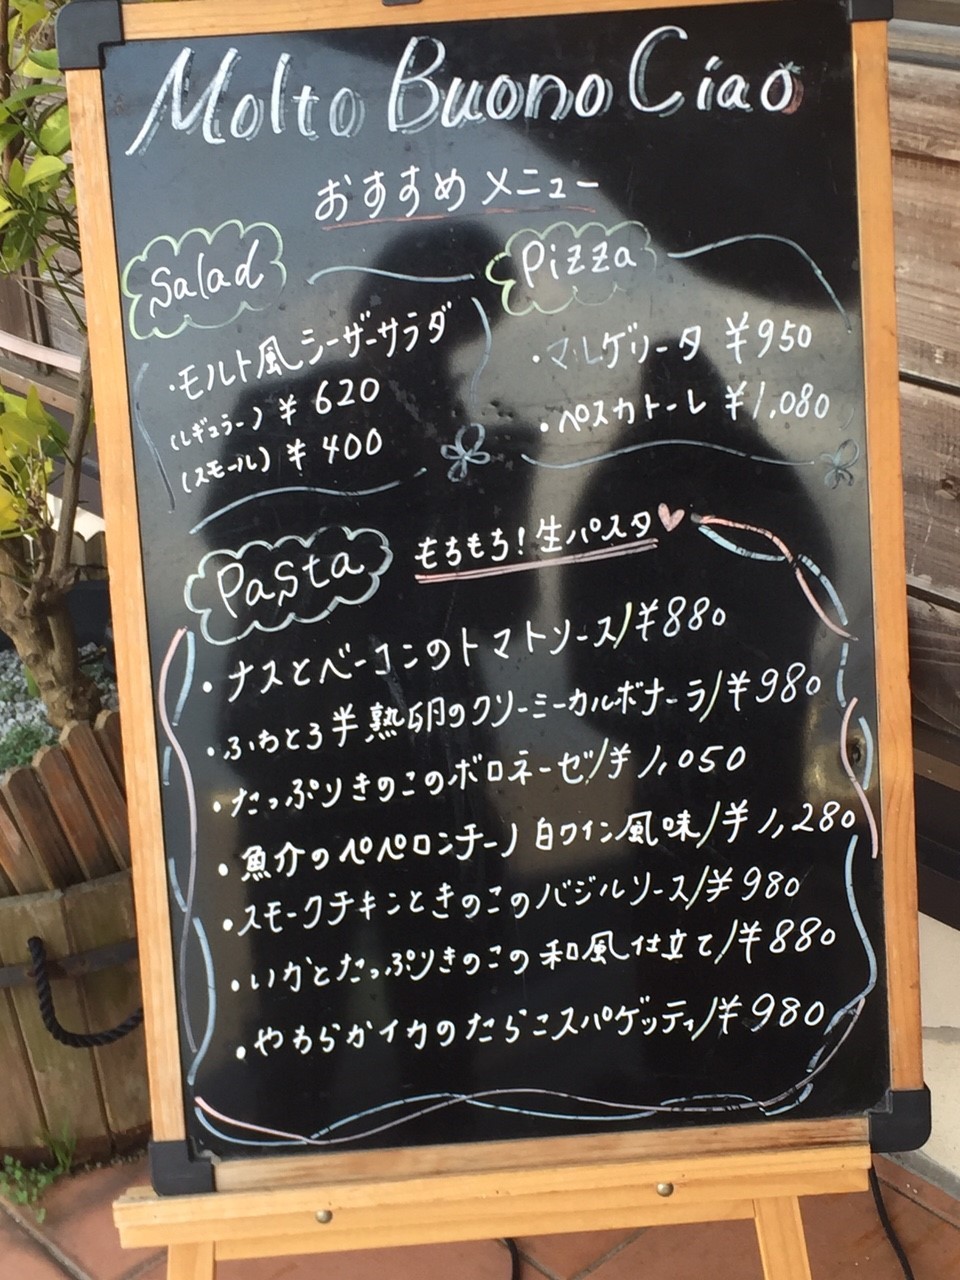 Molto Buono Ciao
おすすめメニュー
Salad
・モルト風シーザーサラダ
(レギュラー) ¥620
(スモール) ¥400
Pizza
・マルゲリータ ¥950
・ペスカトーレ ¥1,080
Pasta
もちもち!生パスタ♥
・ナスとベーコンのトマトソース/¥880
・ふわとろ半熟卵のクリーミーカルボナーラ/¥980
・たっぷりきのこのボロネーゼ/¥1,050
・魚介のペペロンチーノ 白ワイン風味/¥1,280
・スモークチキンときのこのバジルソース/¥980
・いかとたっぷりきのこの和風仕立て/¥880
・やわらかイカのたらこスパゲッティ/¥980